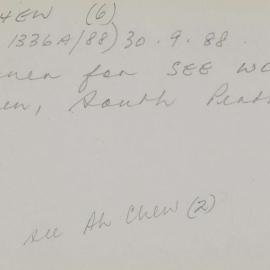 HEW (6)
1336A/88) 30.9.88.
for SEE WO
South Perth
see Ah Chew (2)